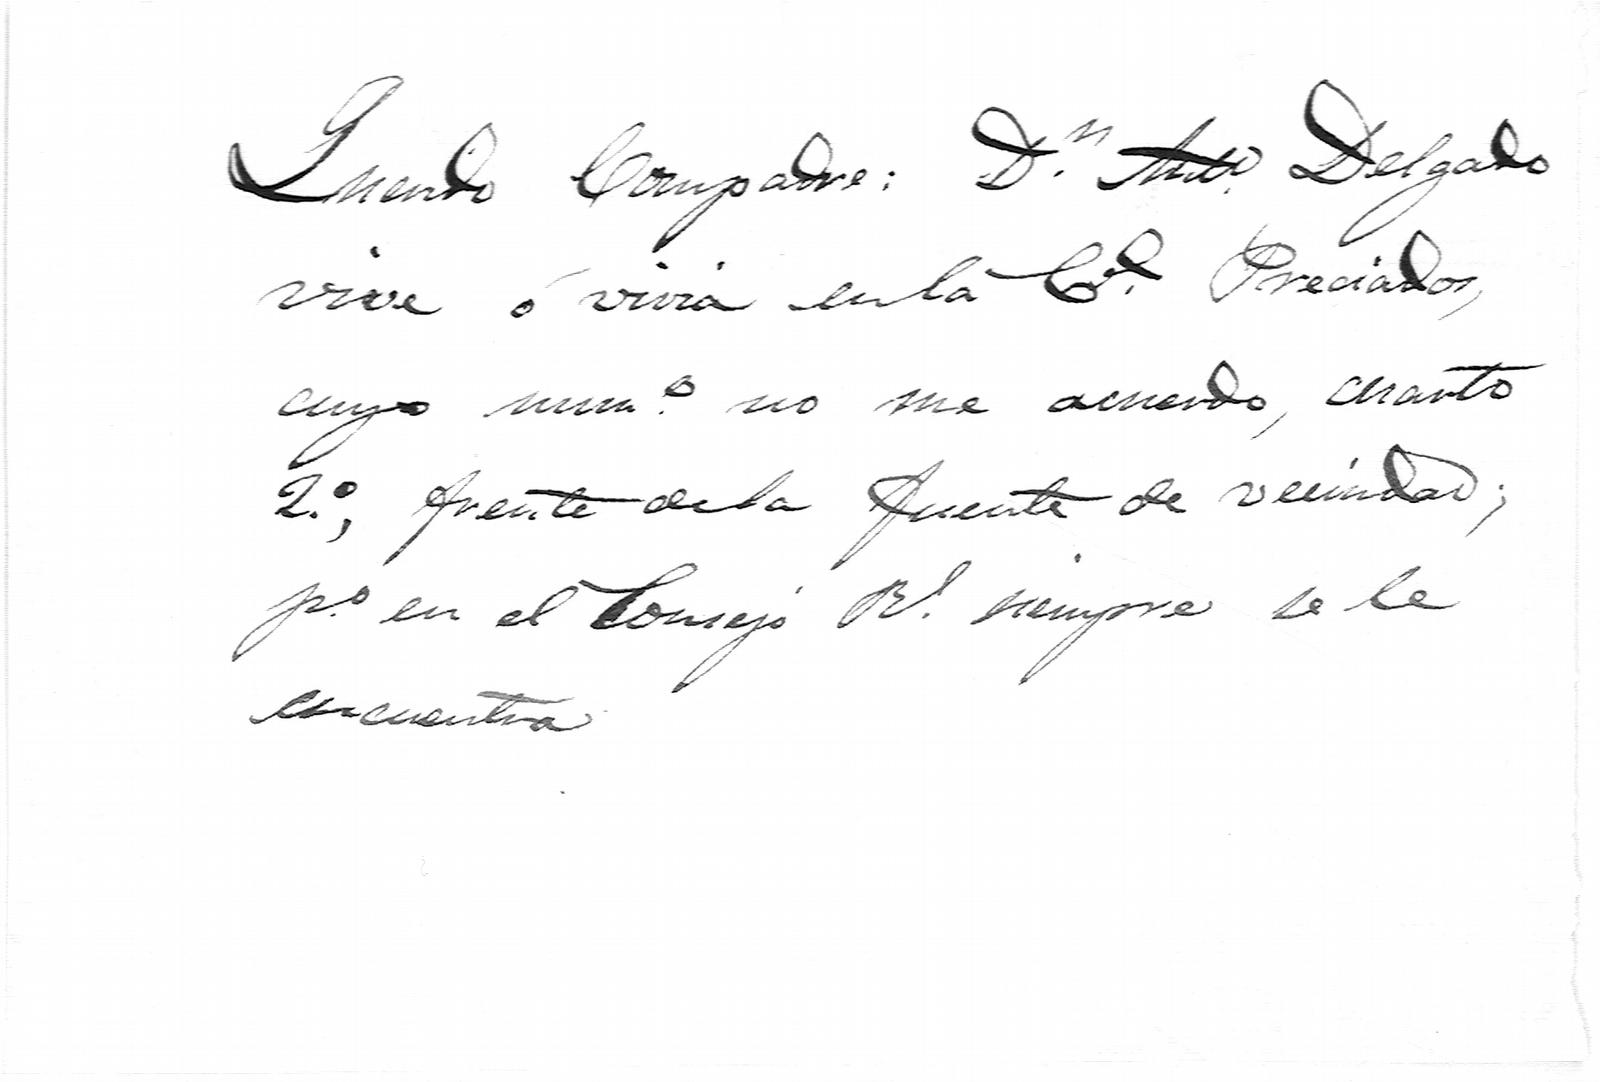 Querido Compadre: D.ⁿ Antº. Delgado
vive ó vivia en la C.ᵈ Preciados,
cuyo num.º no me acuerdo, cuarto
2.º, frente de la fuente de vecindad;
p.º en el Consejo R.ˡ siempre se le
encuentra